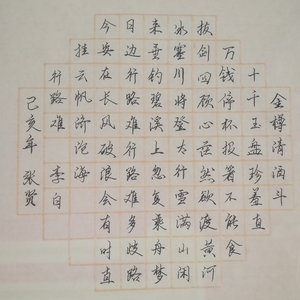 金樽清酒斗
十千玉盘珍羞直
万钱停杯投箸不能食
拔剑四顾心茫然欲渡黄河
冰塞川将登太行雪满山闲
来垂钓碧溪上忽复乘舟梦
日边行路难行路难多歧路
今安在长风破浪会有时直
挂云帆济沧海
行路难 李白
己亥年 张贤